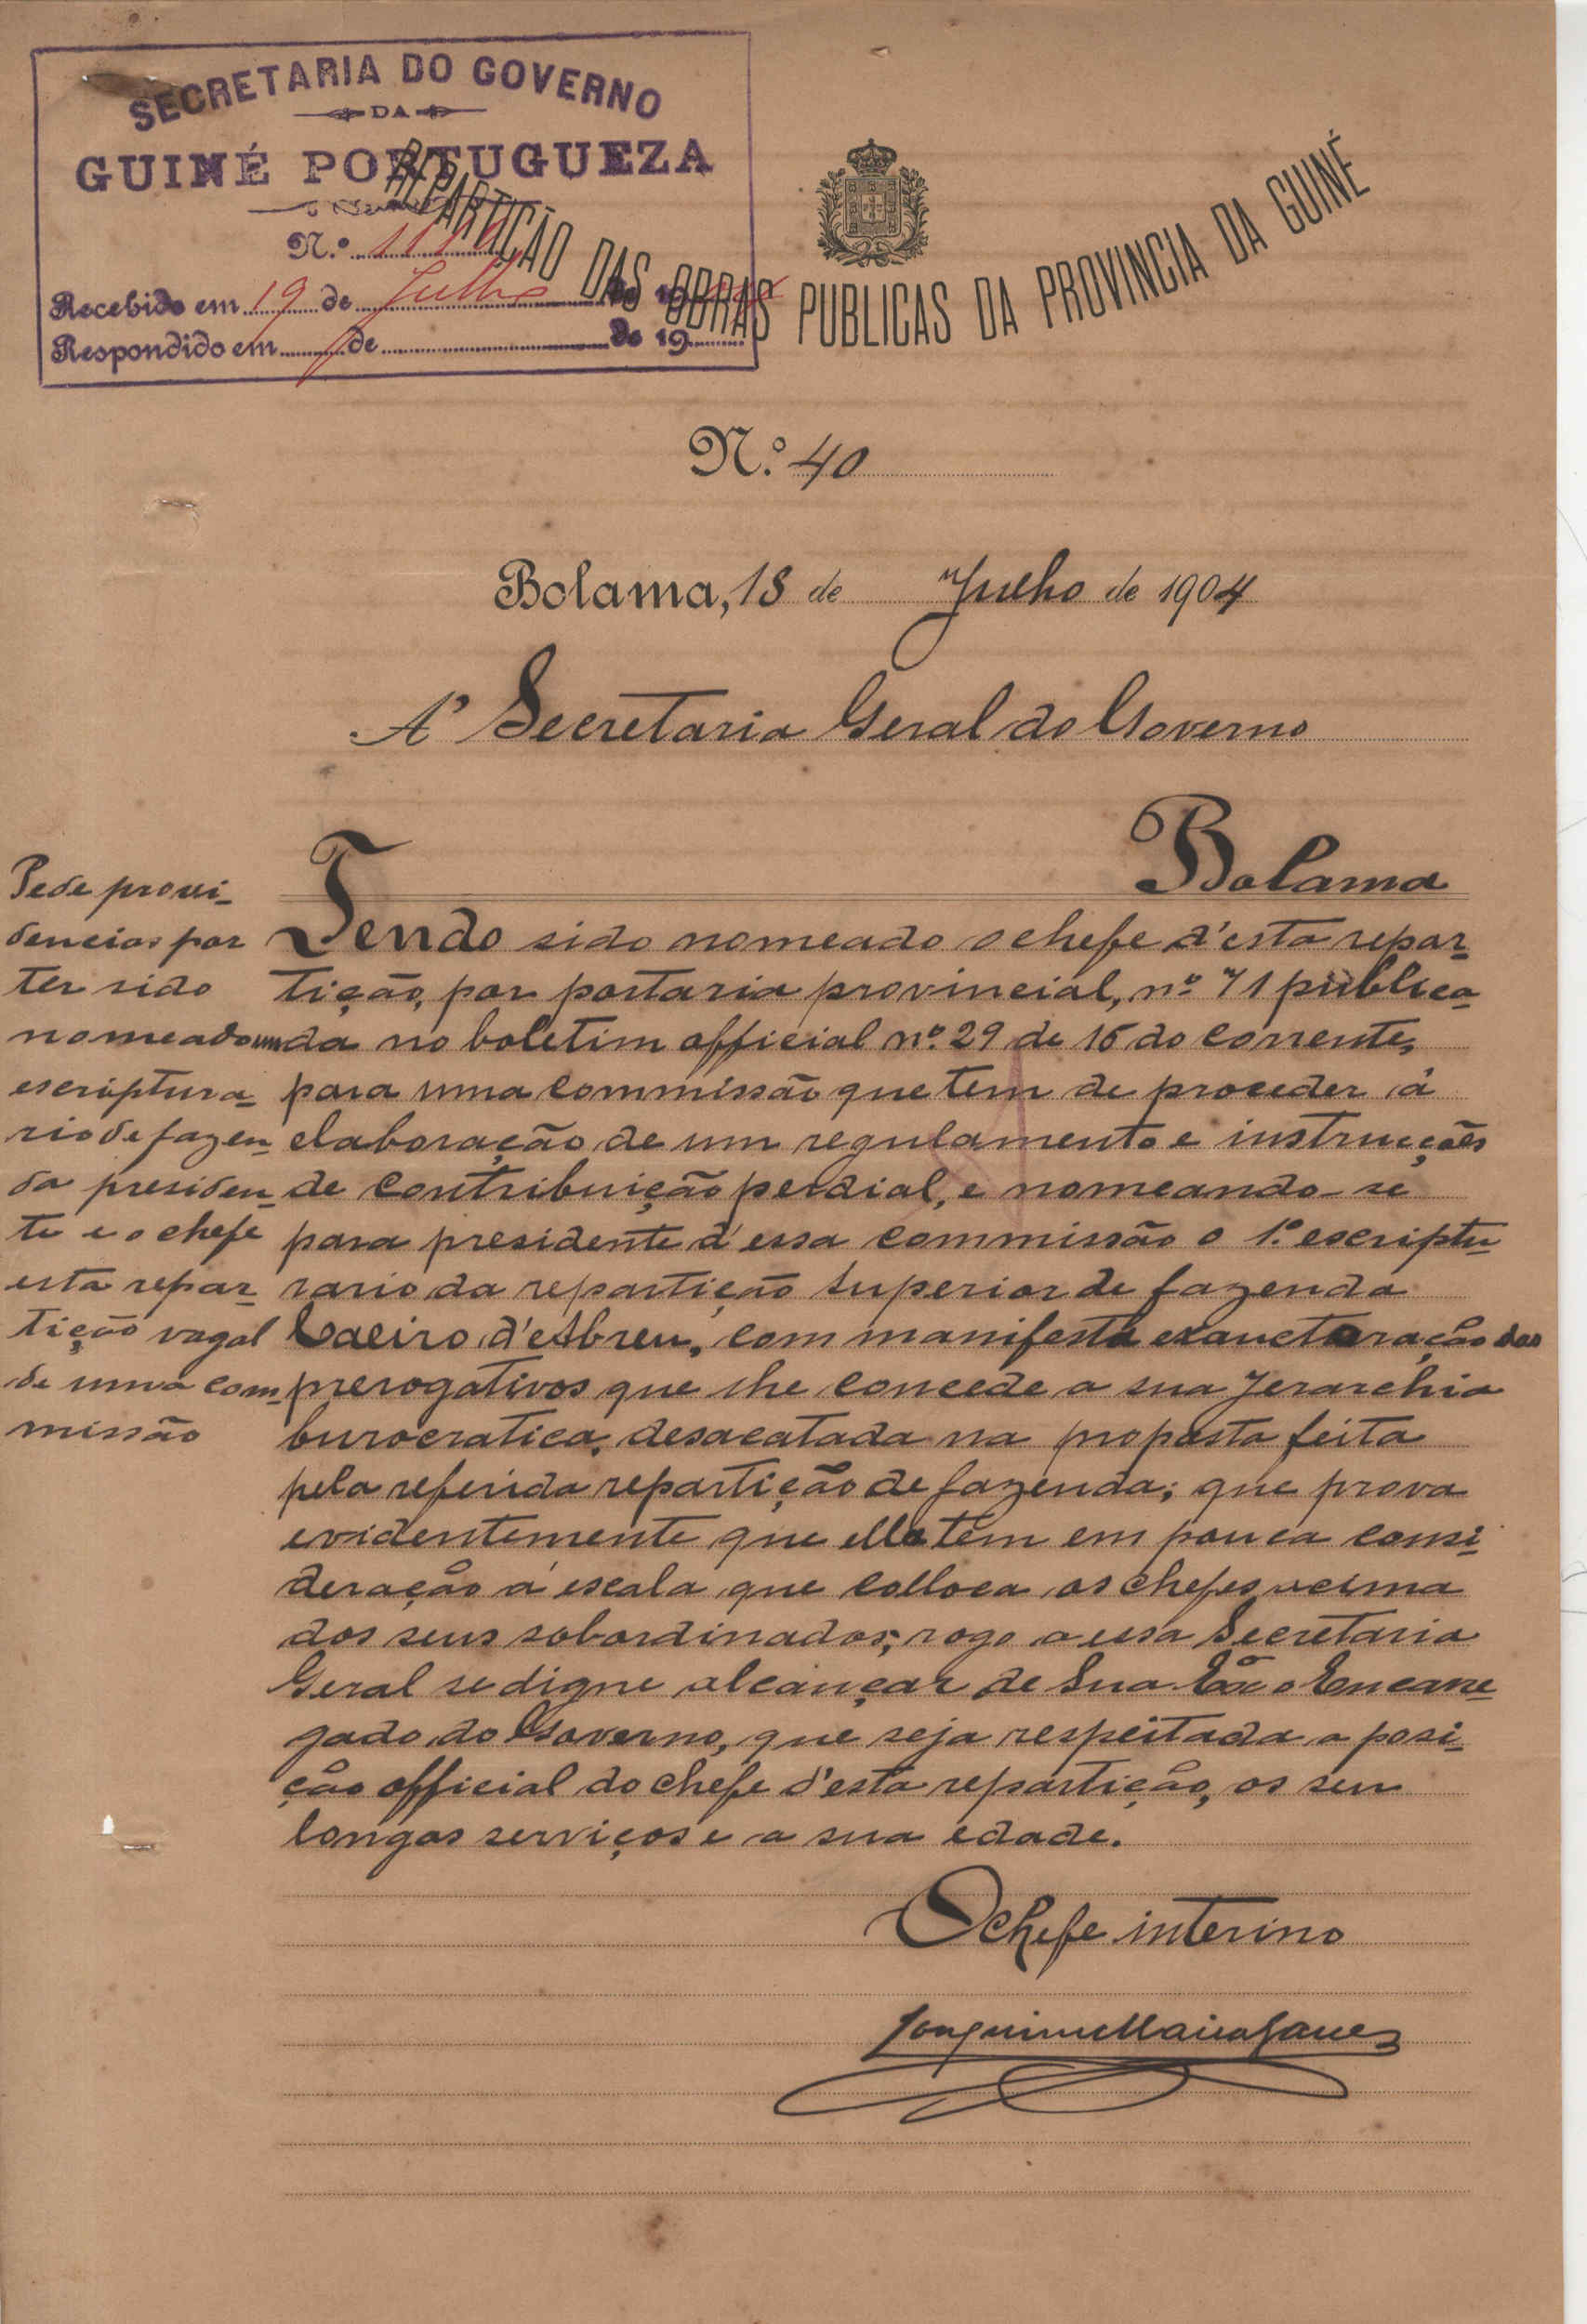 SECRETARIA DO GOVERNO
DA
GUINÉ PORTUGUEZA
N.º
Recebido em 19 de Julho de 19
Respondido em de de 19
REPARTIÇÃO DAS OBRAS PUBLICAS DA PROVINCIA DA GUINÉ
N.º 40
Bolama, 18 de Julho de 1904
A' Secretaria Geral do Governo
Bolama
Pede provi-
dencias por
ter sido
nomeado um
escriptura-
rio de fazen-
da presiden-
te e o chefe
esta repar-
tição vogal
de uma com-
missão
Tendo sido nomeado o chefe d'esta repar-
tição, por portaria provincial, nº 71 publica-
da no boletim official nº 29 de 16 do corrente,
para uma commissão que tem de proceder á
elaboração de um regulamento e instrucções
de contribuição perdial, e nomeando-se
para presidente d'essa commissão o 1.º escriptu-
rario da repartição superior de fazenda
Caeiro d'Abreu, com manifesta exauctoração das
prerogativos que lhe concede a sua jerarchia
burocratica, desacatada na proposta feita
pela referida repartição de fazenda; que prova
evidentemente que ella têm em pouca consi-
deração a escala que colloca os chefes acima
dos seus sobordinados; rogo a essa Secretaria
Geral se digne alcançar de Sua Exª o Encarre-
gado do Governo, que seja respeitada a posi-
ção official do chefe d'esta repartição, os seus
longos serviços e a sua edade.
O chefe interino
Joaquim Maria